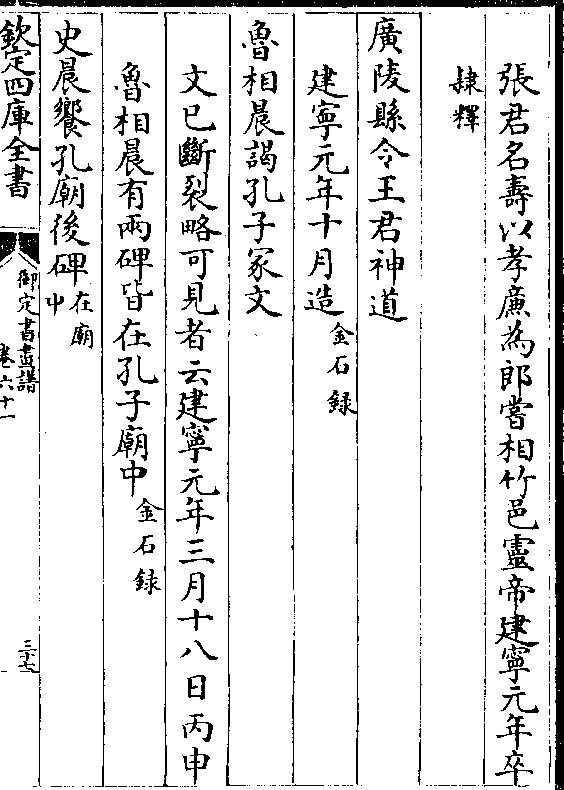 張君名壽以孝廉為郎嘗相竹邑靈帝建寧元年卒
隸釋
廣陵縣令王君神道
建寧元年十月造金石録
魯相晨謁孔子冢文
文已斷裂略可見者云建寧元年三月十八日丙申
魯相晨有兩碑皆在孔子廟中金石録
史晨饗孔廟後碑在廟中
欽定四庫全書
御定書畫譜
卷六十一
三十七